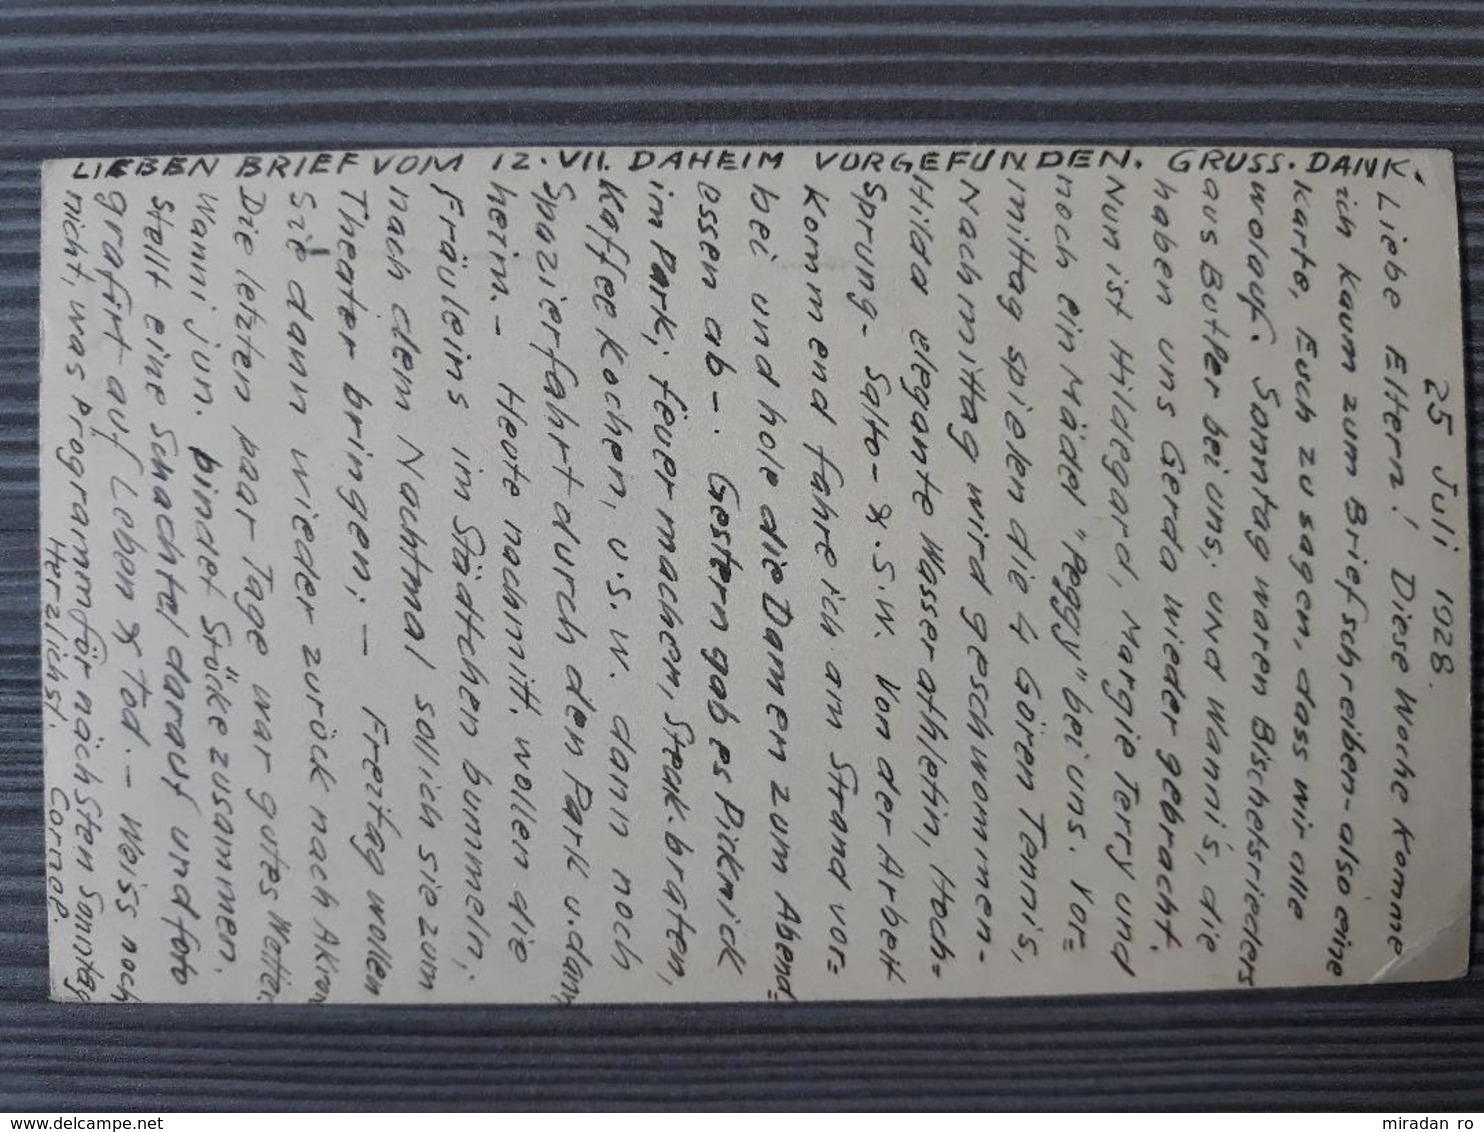 25 Juli 1928.
Liebe Eltern! Diese Woche komme
ich kaum zum Briefschreiben - also eine
Karte, Euch zu sagen, dass wir alle
wolauf. Sonntag waren Bischelsrieders
aus Butler bei uns; und Wanni's, die
haben uns Gerda wieder gebracht.
Nun ist Hildegard, Margie Terry und
noch ein Mädel "Peggy" bei uns. Vor=
mittag spielen die 4 Gören Tennis,
Nachmittag wird geschwommen-
Hilda elegante Wasserathletin, Hoch=
Sprung- Salto- & .S.W. Von der Arbeit
kommend fahre ich am Strand vor=
bei und hole die Damen zum Abend=
essen ab-. Gestern gab es Picknick
im Park; feuer machen, Steak braten,
Kaffee kochen, u.s.w. dann noch
Spazierfahrt durch den Park u. dann
heim. - Heute nachmit. wollen die
Fräuleins im Städtchen bummeln;
nach dem Nachtmal soll ich sie zum
Theater bringen; - Freitag wollen
Sie dann wieder zurück nach Akron
Die letzten paar Tage war gutes Wetter.
Wanni jun. bindet Stöcke zusammen.
Stellt eine Schachtel darauf und foto
grafirt auf Leben & Tod. - Weiss noch
nicht, was programm für nächsten Sonntag
Herzlichst. Cornel.
LIEBEN BRIEF VOM 12.VII. DAHEIM VORGEFUNDEN. GRUSS. DANK.
miradan ro